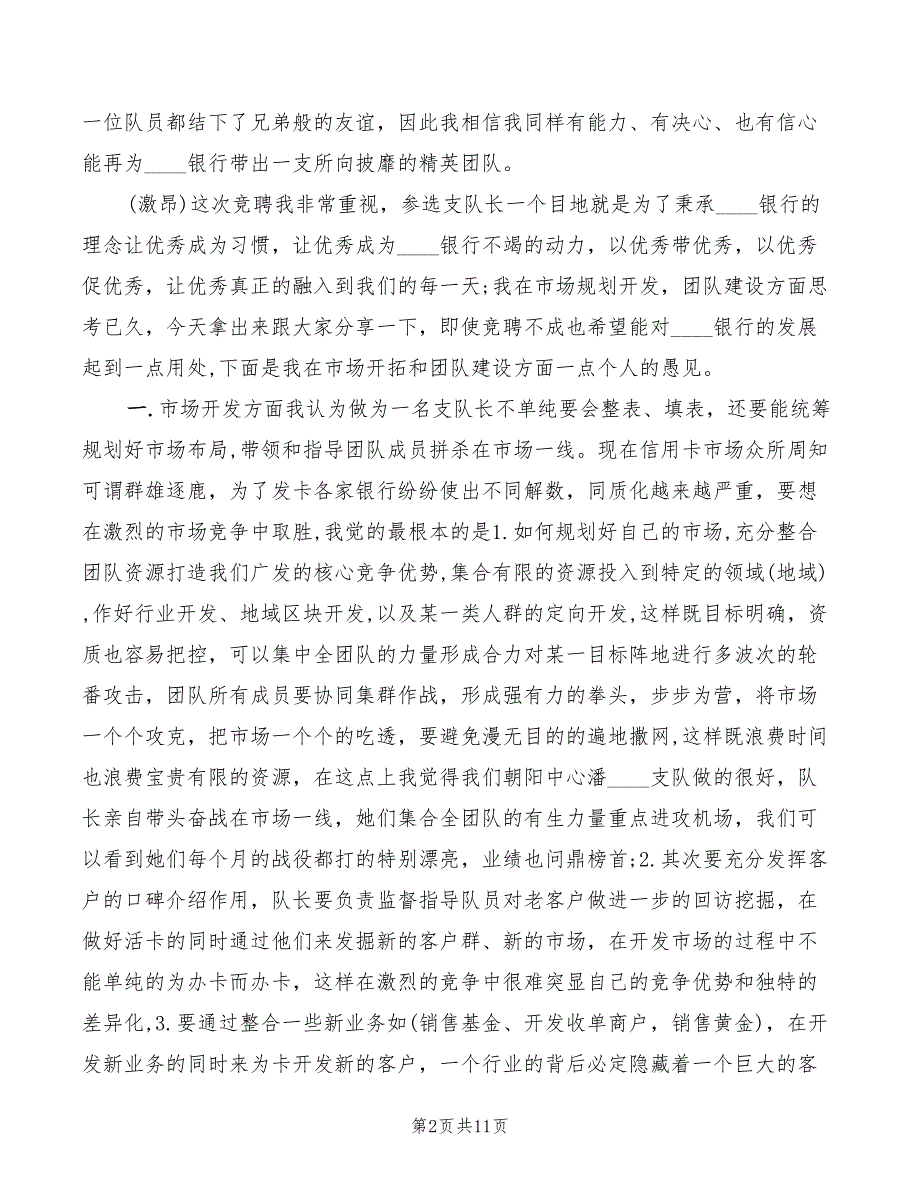 一位队员都结下了兄弟般的友谊，因此我相信我同样有能力、有决心、也有信心
能再为____银行带出一支所向披靡的精英团队。
(激昂)这次竞聘我非常重视，参选支队长一个目地就是为了秉承____银行的
理念让优秀成为习惯，让优秀成为____银行不竭的动力，以优秀带优秀，以优秀
促优秀，让优秀真正的融入到我们的每一天;我在市场规划开发，团队建设方面思
考已久，今天拿出来跟大家分享一下，即使竞聘不成也希望能对____银行的发展
起到一点用处,下面是我在市场开拓和团队建设方面一点个人的愚见。
一.市场开发方面我认为做为一名支队长不单纯要会整表、填表，还要能统筹
规划好市场布局,带领和指导团队成员拼杀在市场一线。现在信用卡市场众所周知
可谓群雄逐鹿，为了发卡各家银行纷纷使出不同解数，同质化越来越严重，要想
在激烈的市场竞争中取胜,我觉的最根本的是1.如何规划好自己的市场,充分整合
团队资源打造我们广发的核心竞争优势,集合有限的资源投入到特定的领域(地域)
,作好行业开发、地域区块开发,以及某一类人群的定向开发,这样既目标明确，资
质也容易把控，可以集中全团队的力量形成合力对某一目标阵地进行多波次的轮
番攻击，团队所有成员要协同集群作战，形成强有力的拳头，步步为营，将市场
一个个攻克，把市场一个个的吃透，要避免漫无目的的遍地撒网,这样既浪费时间
也浪费宝贵有限的资源，在这点上我觉得我们朝阳中心潘____支队做的很好，队
长亲自带头奋战在市场一线，她们集合全团队的有生力量重点进攻机场，我们可
以看到她们每个月的战役都打的特别漂亮，业绩也问鼎榜首;2.其次要充分发挥客
户的口碑介绍作用，队长要负责监督指导队员对老客户做进一步的回访挖掘，在
做好活卡的同时通过他们来发掘新的客户群、新的市场，在开发市场的过程中不
能单纯的为办卡而办卡，这样在激烈的竞争中很难突显自己的竞争优势和独特的
差异化,3.要通过整合一些新业务如(销售基金、开发收单商户，销售黄金)，在开
发新业务的同时来为卡开发新的客户，一个行业的背后必定隐藏着一个巨大的客
第2页共11页